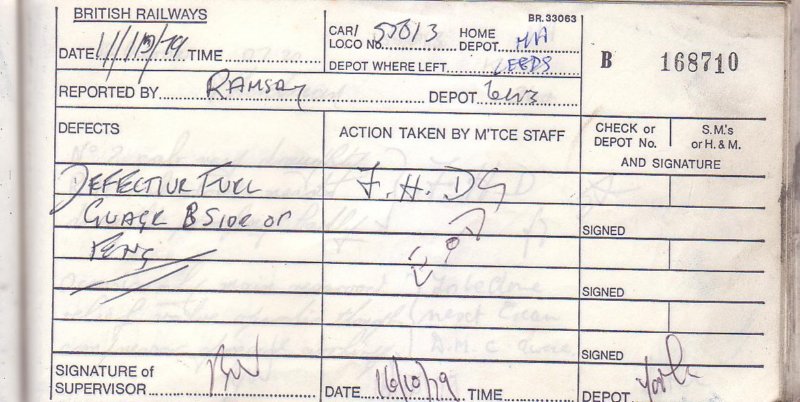 BRITISH RAILWAYS
BR.33063
DATE 11/10/79 TIME
CAR/ LOCO No. 55013 HOME DEPOT HA
DEPOT WHERE LEFT LEEDS
B 168710
REPORTED BY RAMSAY DEPOT
DEFECTS
ACTION TAKEN BY M'TCE STAFF
CHECK or DEPOT No.
S.M.'s or H. & M.
AND SIGNATURE
DEFECTIVE FUEL
GUAGE B SIDE OF
SIGNED
SIGNED
SIGNED
SIGNATURE of
SUPERVISOR
DATE 16/10/79 TIME
DEPOT York